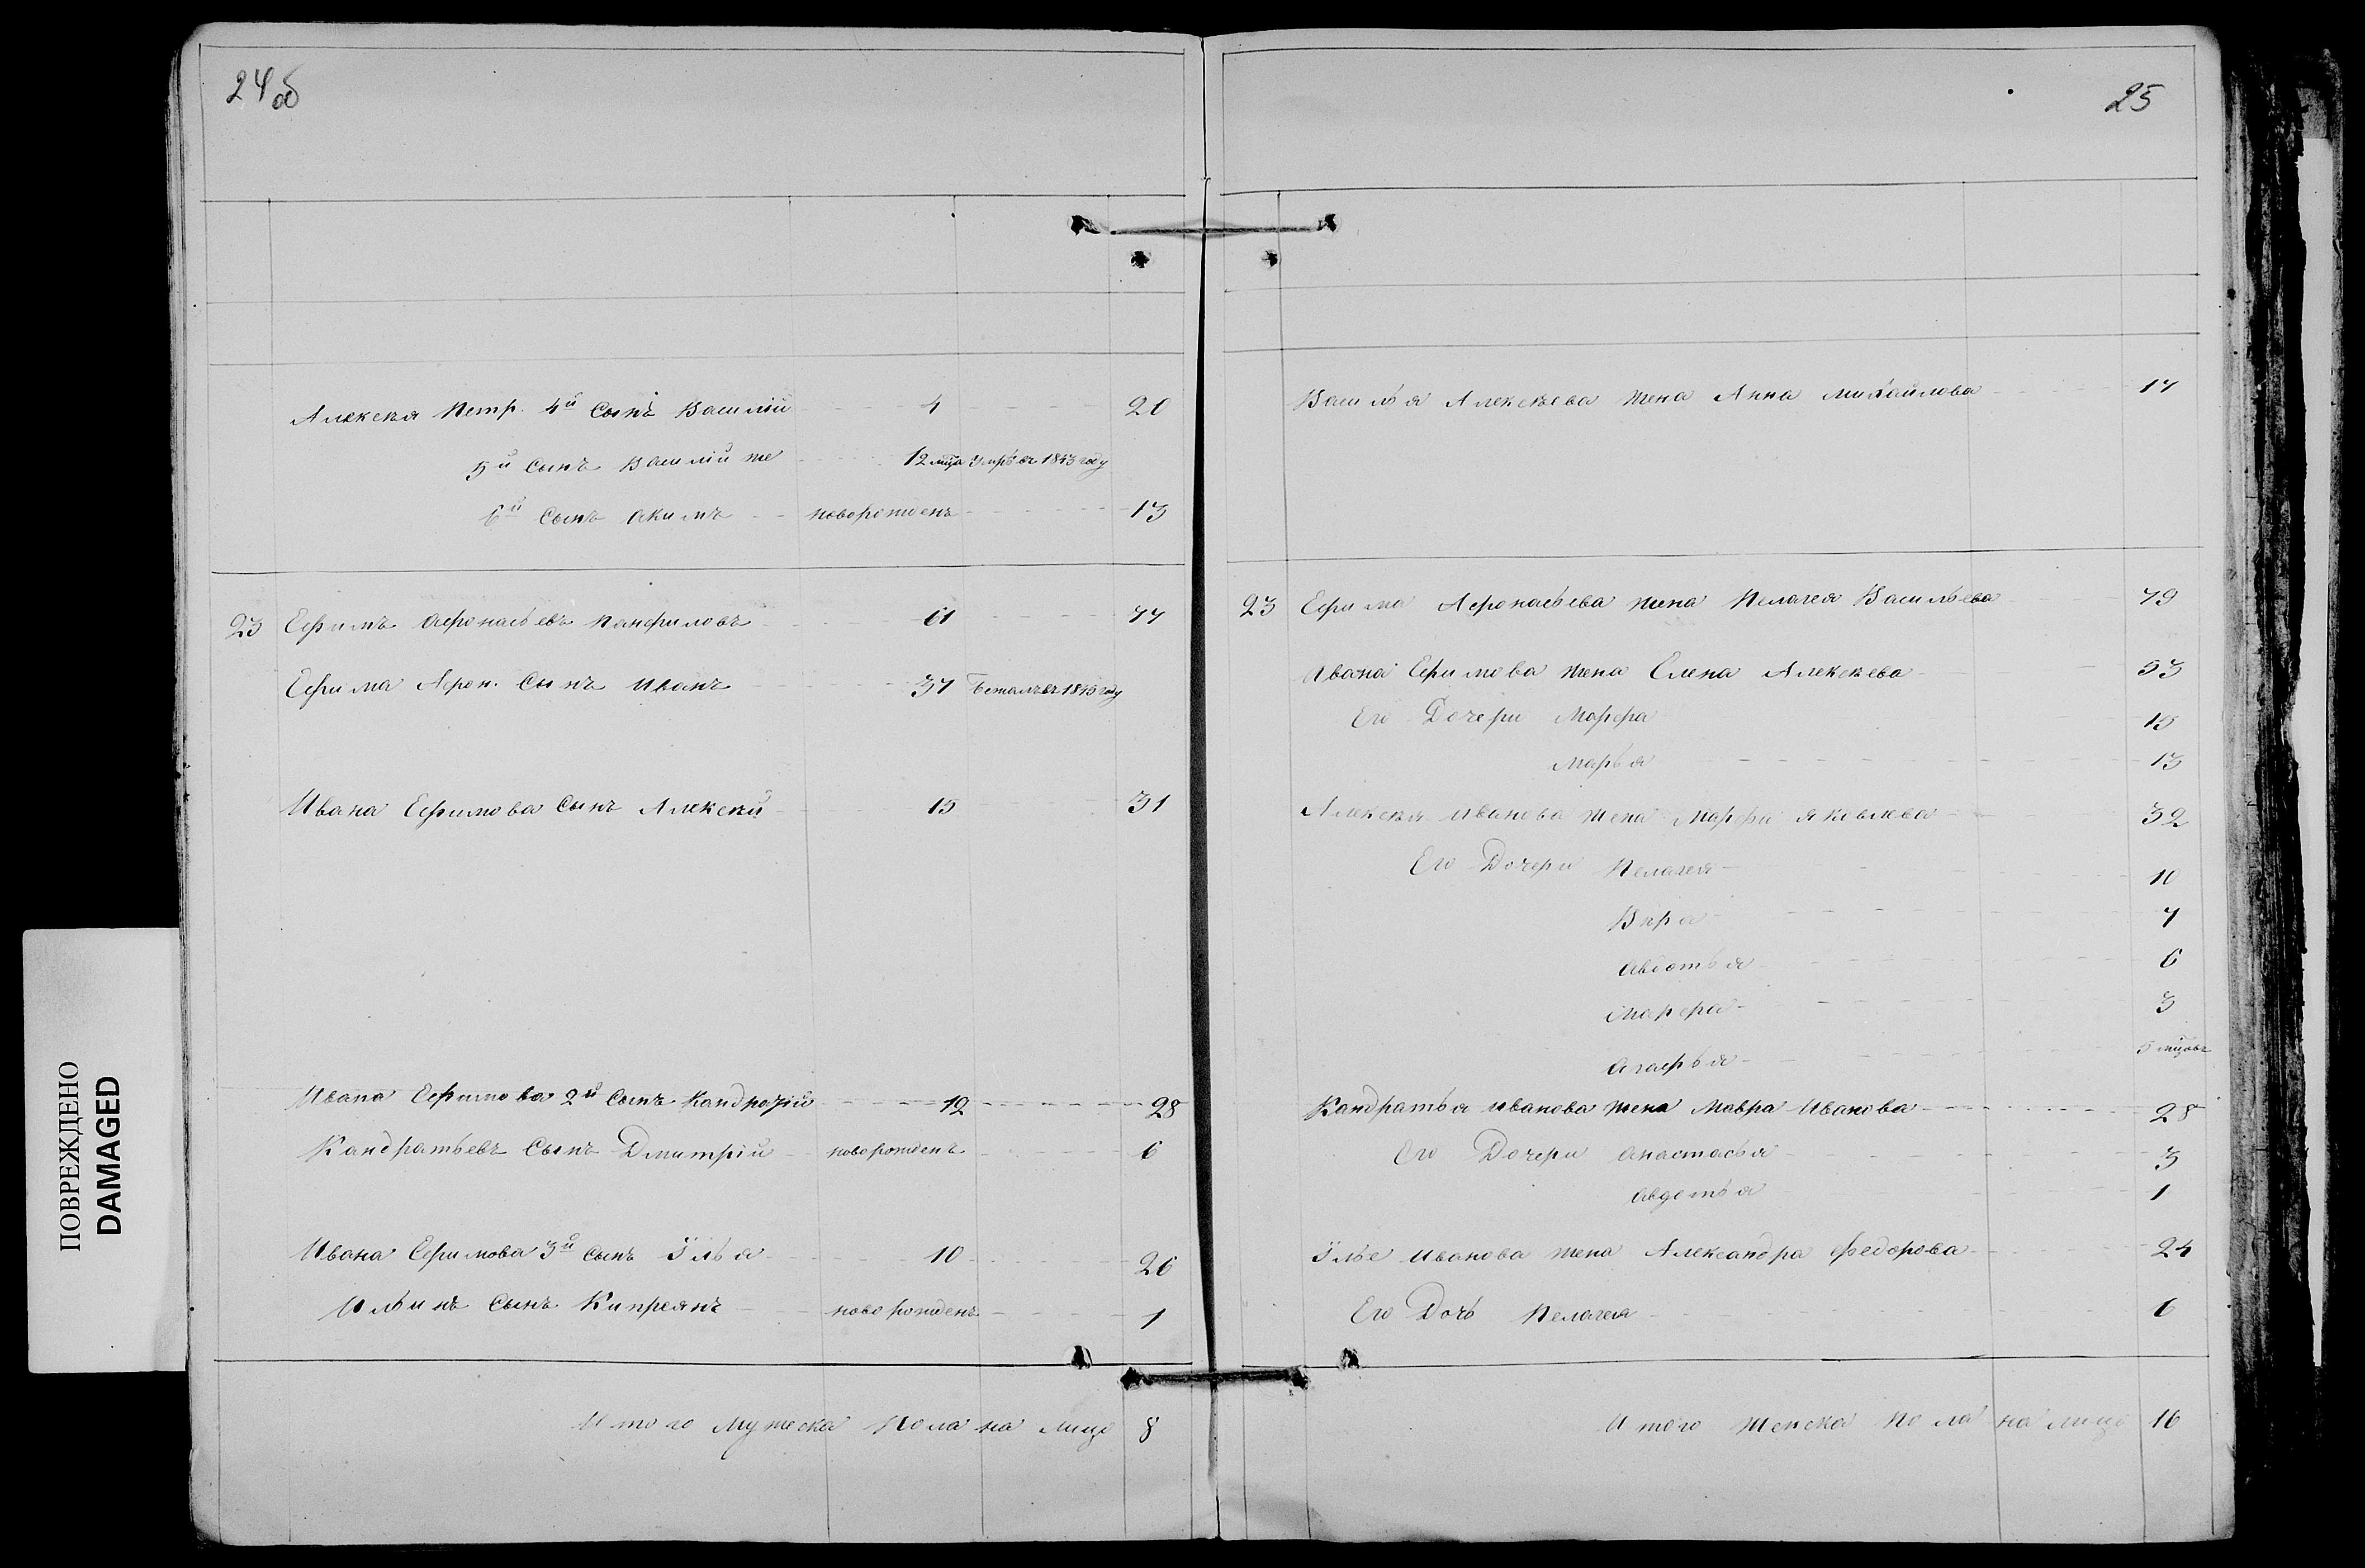 24об
Алексѣя Петр. 4й Сынъ Василій 4 20
5й Сынъ Василій же 12 мца Умръ въ 1843 году
6й Сынъ Акимъ новорожденъ 13
23 Ефимъ Афонасьевъ Панфиловъ 61 77
Ефима Афон. Сынъ Иванъ 37
Ивана Ефимова Сынъ Алексѣй 15 31
Ивана Ефимова 2й Сынъ Кандротій 12 28
Кандратьевъ Сынъ Дмитрій новорожденъ 6
Ивана Ефимова 3й Сынъ Илья 10 26
Ильинъ Сынъ Кипреянъ новорожденъ 1
Итого Мужеска Пола на лицо 8
25
Василья Алексѣева жена Анна Михайлова 17
23 Ефима Афонасьева жена Пелагея Васильева 79
Ивана Ефимова жена Елена Алексѣева 53
Его Дочери Марфа 15
Марья 13
Алексѣя Иванова жена Марфа Яковлева 32
Его Дочери Пелагея 10
Вѣра 7
Авдотья 6
Марфа 3
Агафья 5 мцовъ
Кандратья Иванова жена Мавра Иванова 28
Его Дочери Анастасья 3
Авдотья 1
Илье Иванова жена Александра Федорова 24
Его Дочь Пелагея 6
Итого Женска Пола на лицо 16
ПОВРЕЖДЕНО
DAMAGED